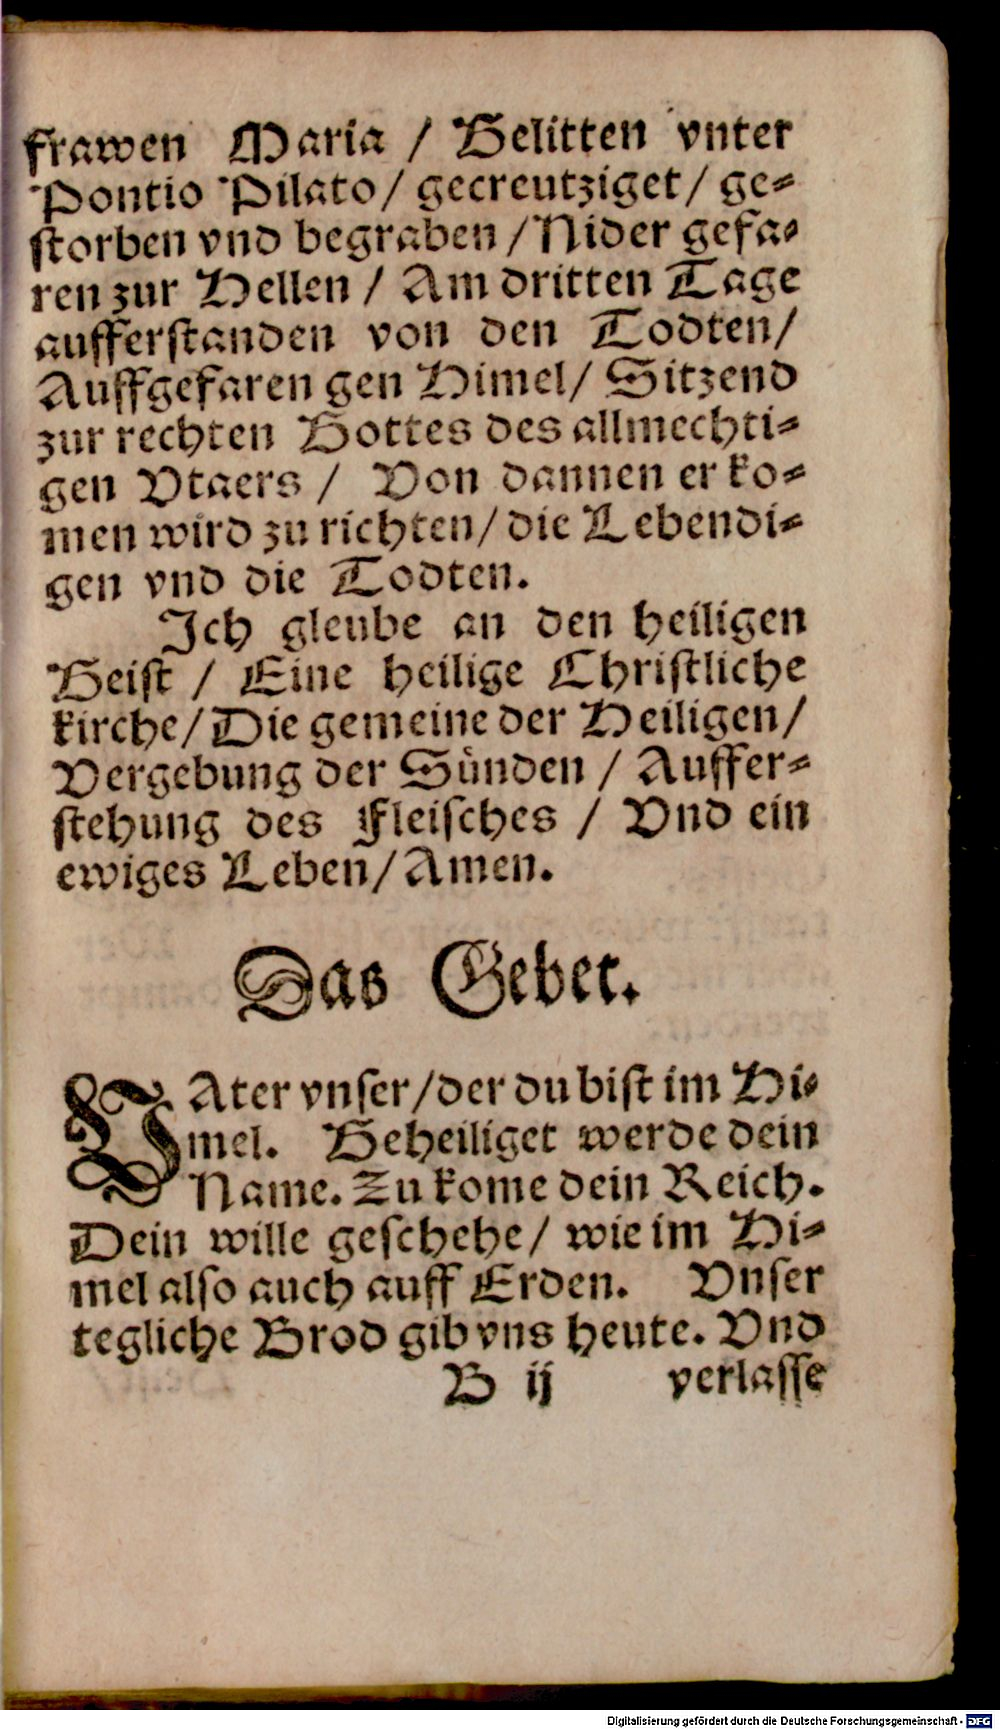 frawen Maria / Gelitten vnter
Pontio Pilato/ gecreutziget/ ge-
storben vnd begraben / Nider gefa-
ren zur Hellen / Am dritten Tage
aufferstanden von den Todten/
Auffgefaren gen Himel/ Sitzend
zur rechten Gottes des allmechti-
gen Vtaers / Von dannen er ko-
men wird zu richten/ die Lebendi-
gen vnd die Todten.
Ich gleube an den heiligen
Geist / Eine heilige Christliche
kirche/ Die gemeine der Heiligen/
Vergebung der Sünden / Auffer-
stehung des Fleisches / Vnd ein
ewiges Leben/ Amen.
Das Gebet.
VAter vnser/der du bist im Hi-
mel. Geheiliget werde dein
Name. Zu kome dein Reich.
Dein wille geschehe/ wie im Hi-
mel also auch auff Erden. Vnser
tegliche Brod gib vns heute. Vnd
B ij verlasse
Digitalisierung gefördert durch die Deutsche Forschungsgemeinschaft - DFG